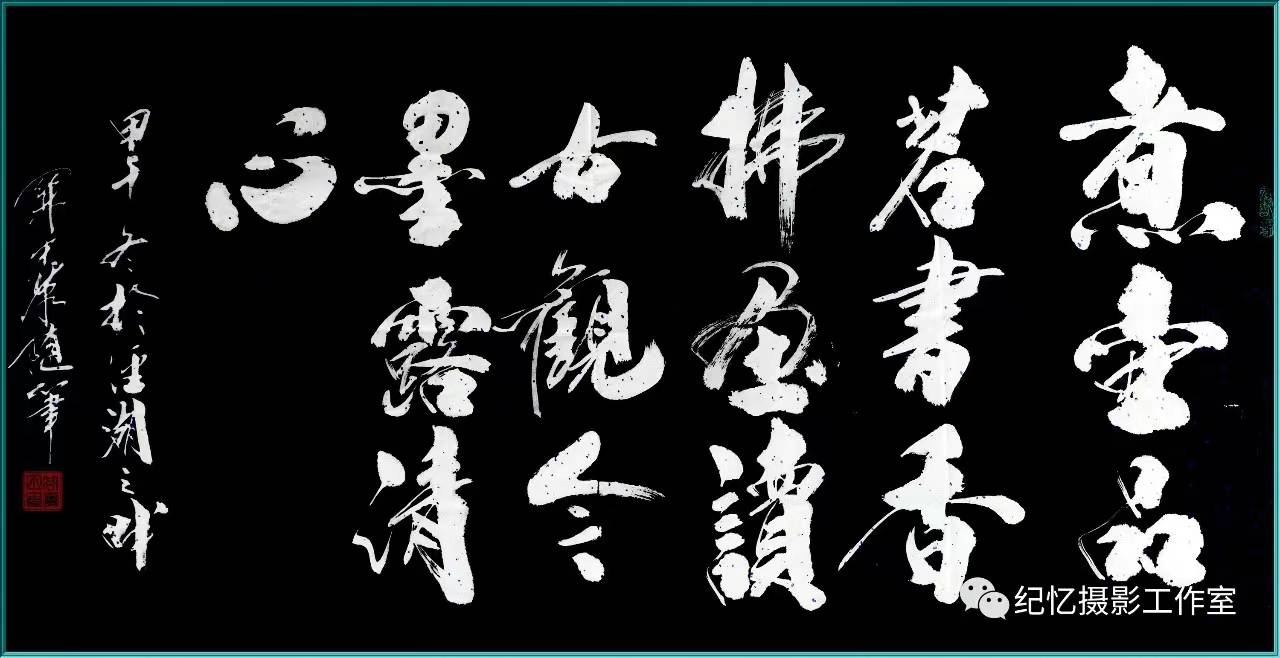 煮壺品
茗書香
拂畫讀
古觀今
墨露清
心
甲午冬於湖之畔
隨筆
纪忆摄影工作室